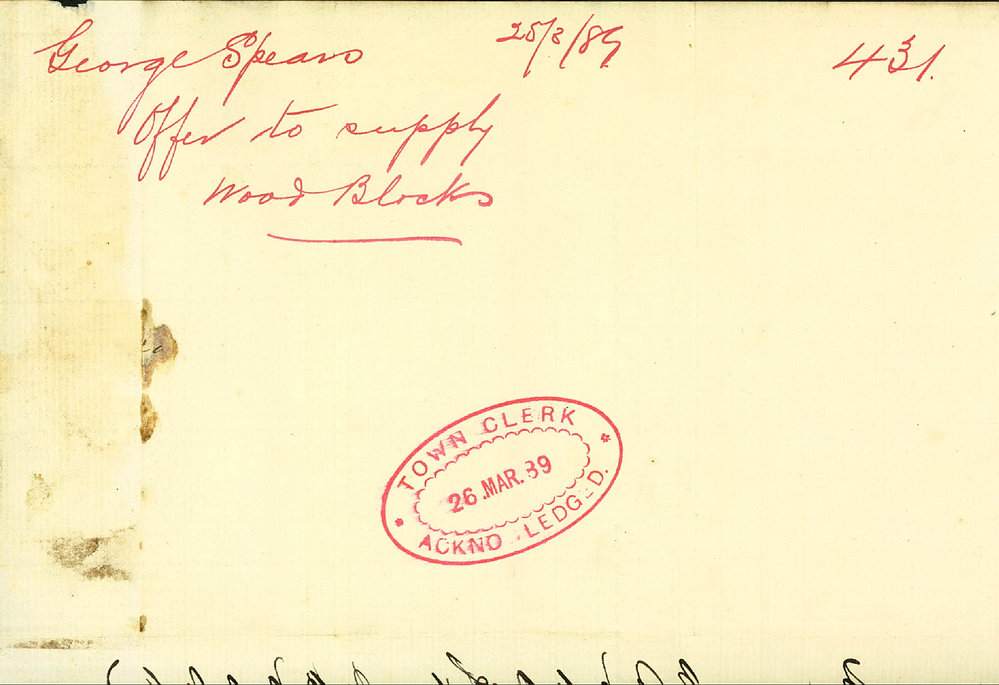 George Spears 25/3/89 431.
Offer to supply
Wood Blocks
TOWN CLERK
26 MAR. 89
ACKNO LEDG D.